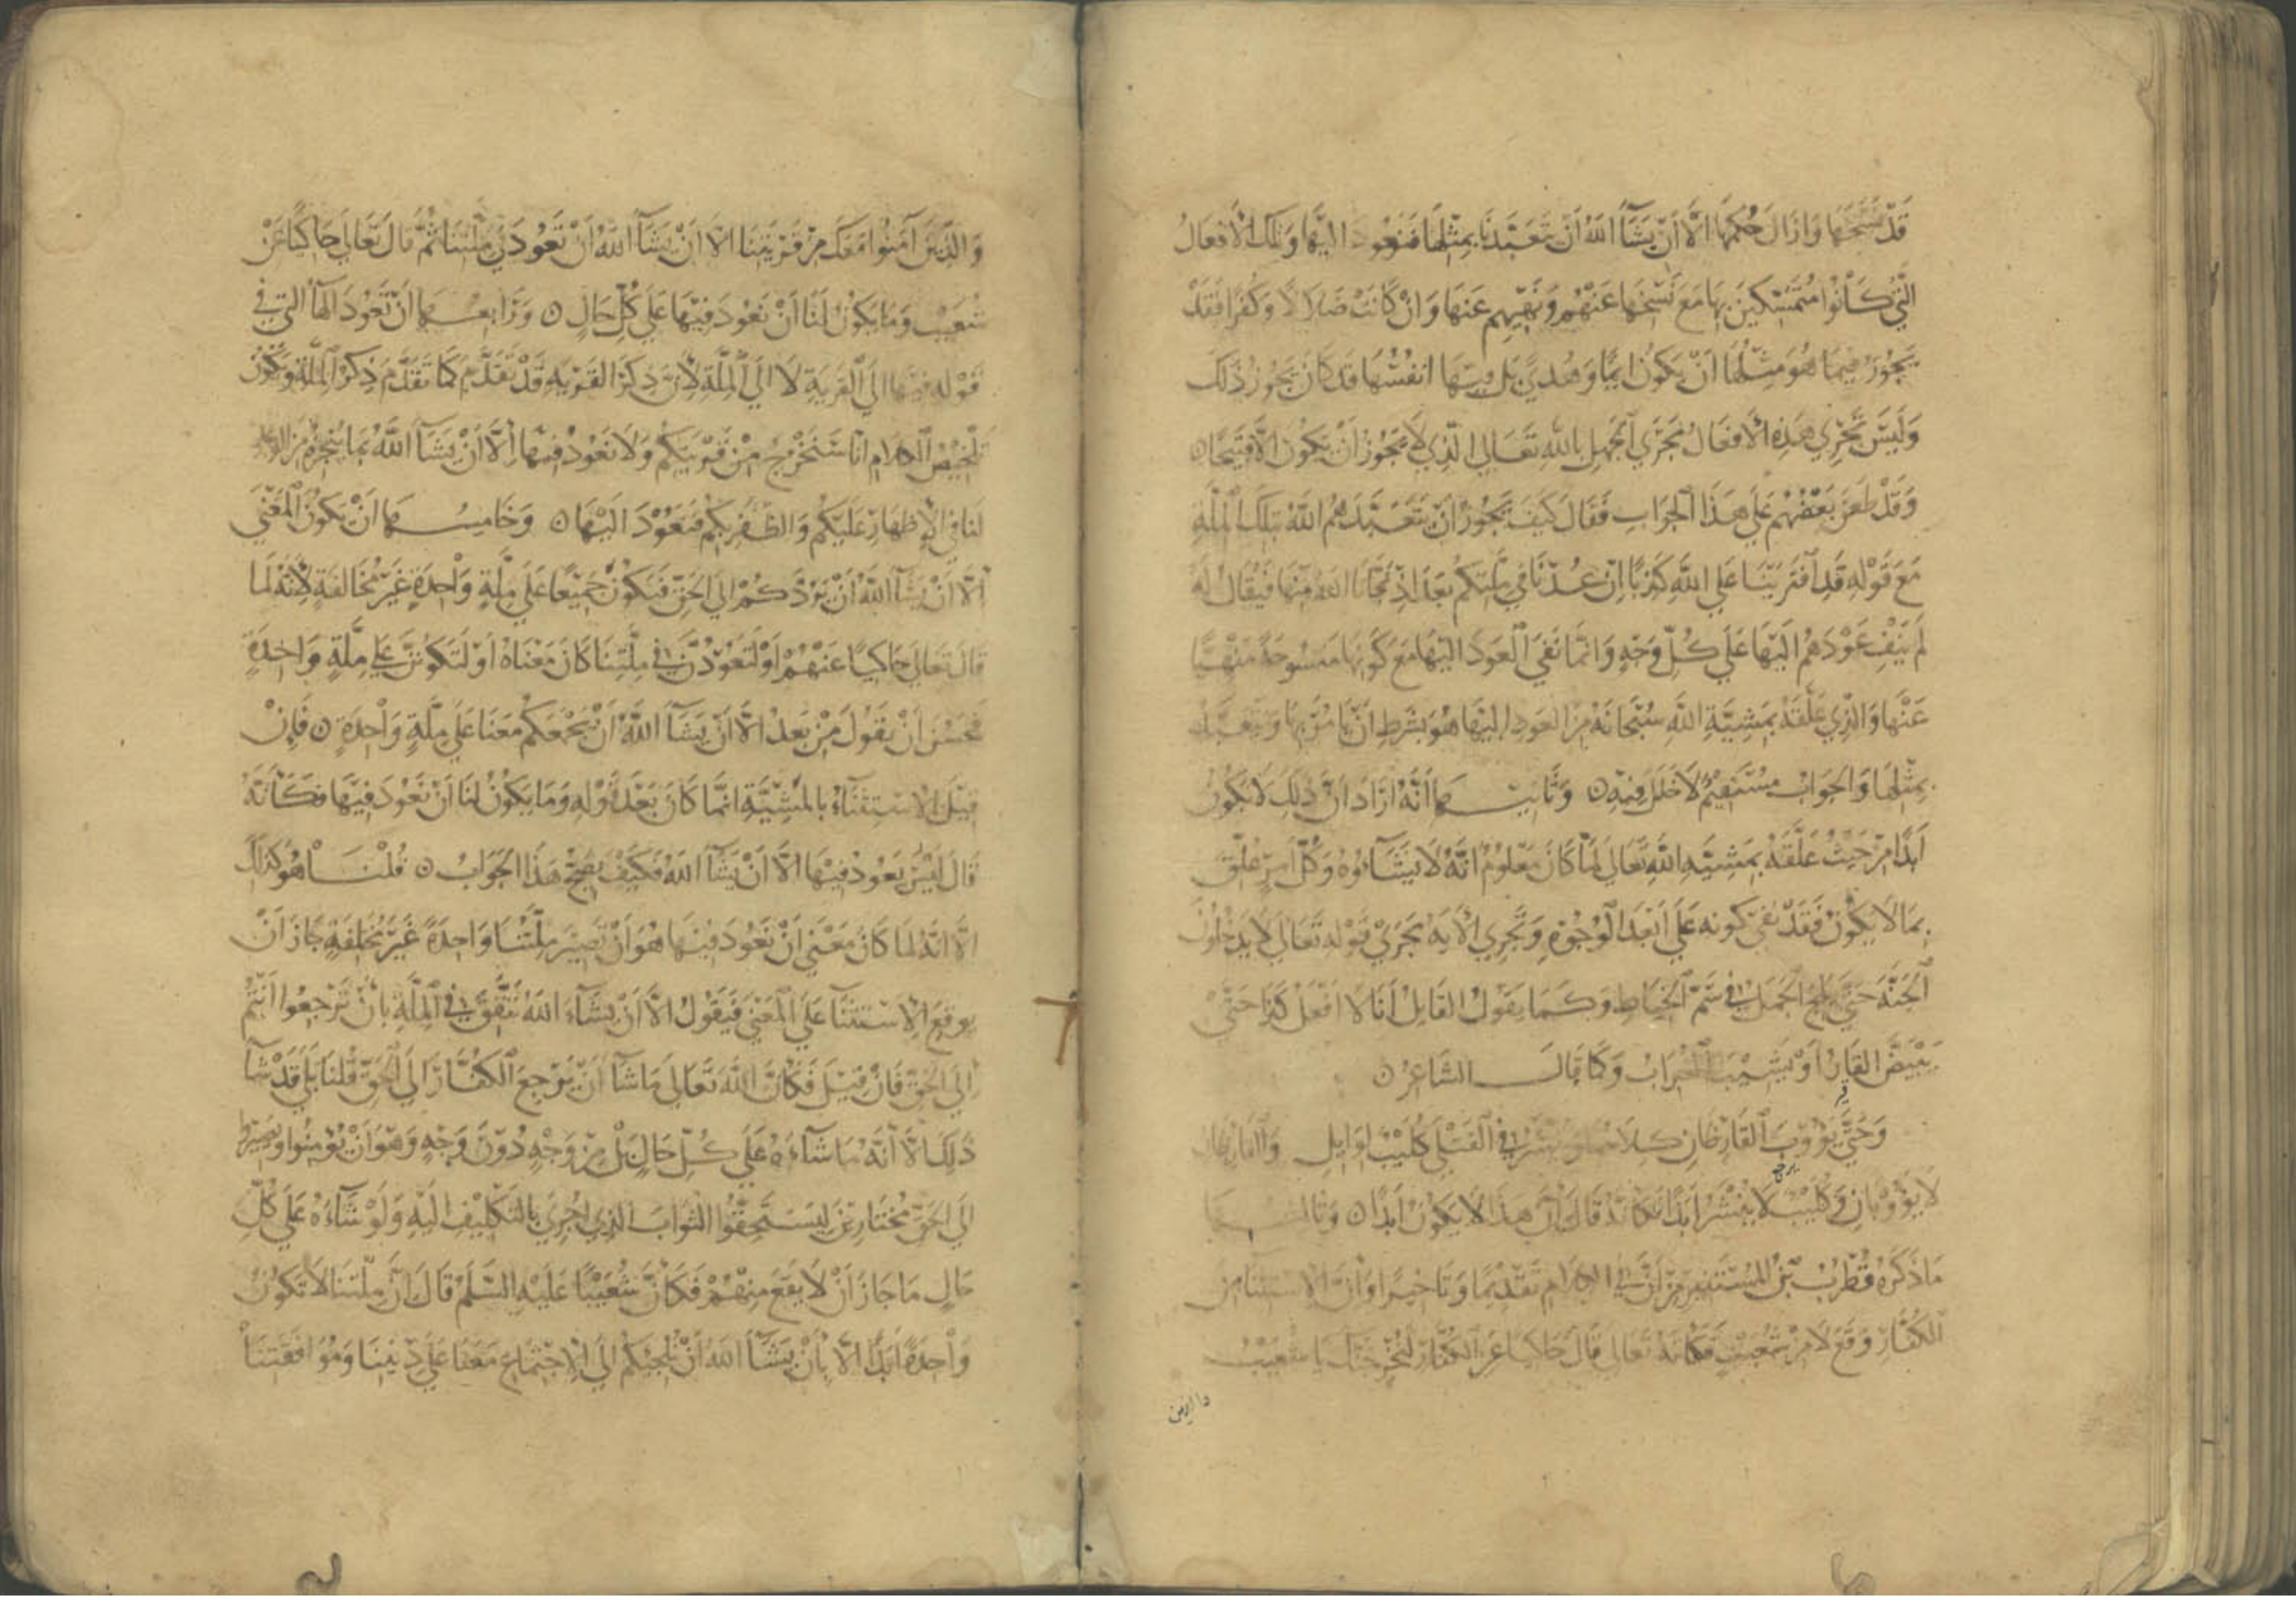 قَدْ نَسَخَهَا وَازَالَ حُكْمَهَا الَّا اَنْ يَشَآءَ اللهُ اَنْ يَتَعَبَّدَنَا بِمِثْلِهَا فَنَعُودَ اليْهَا وَتِلْكَ الْافْعَالُ
التِّي كَانُوا مُتَمَسِّكِينَ بِهَا مَعَ نَسْخِهَا عَنْهُمْ وَنَهْيِهِمْ عَنْهَا وَانْ كَانَتْ ضَلَالًا وَكُفْرًا فَقَدْ
يَجُوزُ فِيمَا هُوَ مِثْلُهَا اَنْ يَكُونَ ايمًانًا وَهُدىً بَل فيهَا انفُسُهَا قد كَانَ يَجُوزُ ذَلكَ
وَلَيْسَ تَجْرِي هَذِهِ الْافعَالُ مَجْرَي الجَهْلِ بِاللهِ تَعَالي الَّذِي لَا يَجُوزُ اَنْ يَكُونَ الَّا قَبِيحًا ۝
وَقَدْ طَعَنَ بَعْضُهُمْ عَلَي هَذَا الْجَوَابِ فَقَالَ كَيْفَ يَجُوزُ اَنْ يَتَعَبَّدَهُمُ اللهُ بِتلكَ الْمِلَّةِ
مَعَ قَوْلِهِ قَدِ افْتَرَيْنَا عَلي اللهِ كَذِبًا اِنْ عُدْنَا في مِلَّتِكُمْ بَعْدَ اذْ نَجَّانَا اللهُ مِنْهَا فَيُقَالُ لَهُ
لَمْ يَنْفِ عَوْدَهُمْ الَيْهَا عَلَي كُلِّ وَجْهٍ وَانَّمَا نَفَي الْعَوْدَ اليْهَا مَعَ كَوْنِهَا مَنْسُوخَةً مَنْهِيًّا
عَنْهَا وَالذِي عَلَّقَهُ بِمَشِيَّةِ اللهِ سُبْحَانَهُ مِنَ العَودِ اليْهَا هُوَ بِشَرطِ اَنْ يَامُرَ بِهَا وَيَتَعَبَّدَ
بِمِثْلِهَا وَالجَوَابُ مُسْتَقِيمٌ لَا خَلَلَ فِيهِ ۝ وَثَانِيهَا اَنَّهُ ارَادَ انَّ ذَلِكَ لَا يَكُونُ
اَبدًا مِنْ حَيْثُ عَلَّقَهُ بِمَشِيَّةِ اللهِ تَعَالي لَمَّا كَانَ مَعْلُومٌ انَّهُ لَا يَشَآءُوهُ وَكُلُّ اَمرٍ عُلِّقَ
بِمَا لَا يَكُونُ فَقَدْ نُفِيَ كَونُهُ عَلَي اَبْعَدِ الْوُجُوهِ وَتَجْرِي الْآيَةُ مَجْرَيْ قَوْلِهِ تَعَالَي لَا يَدْخُلُونَ
الجَنَّةَ حَتَّي يَلِجَ الجَمَلُ فِي سَمِّ الْخِيَاطِ وَكَمَا يَقُولُ القَايِلُ اَنَا لَا افْعَلُ كَذَا حَتَّيْ
يَبْيَضَّ القَارُ اَوْ يَشِيْبَ الْغُرَابُ وَكَمَا قَالَ الشَّاعِرُ ۝
وَحَتَّي يَؤُوبَ القَارِظَانِ كِلَاهُمَا وَيُنْشَرَ في القَتْلَي كُلَيْبٌ لوَايِلِ وَالقَارِظَانِ
لَا يَؤُوبَانِ وَكُلَيْبٌ لَا يُنْشَرُ ابَدًا فَكَانَّهُ قَالَ انَّ هَذَا لَا يَكُونُ ابَدًا ۝ وَثَالثُهَا
مَا ذَكَرَهُ قُطْرُبُ بْنُ المُسْتَنِيرِ مِنْ اَنَّ في الكَلَامِ تَقْدِيمًا وَتَاخِيرًا وَانَّ الْاسْتِثنَا مِنَ
الكُفَّارِ وَقَعَ لَا مِنْ شُعَيْبٍ فَكَانَّهُ تَعَالي قَالَ حَاكِيًا عَنِ الكُفَّارِ لَنُخْرِجَنَّكَ يَا شُعَيْبُ
وَالَّذِيْنَ آمَنُوا مَعَكَ مِنْ قَرْيَتِنَا الَّا اَنْ يَشَآءَ اللهُ اَنْ تَعُودَ فِي مِلَّتِنَا ثُمَّ قَالَ تَعَالَي حَاكِيًا عَنْ
شُعَيْبٍ وَمَا يَكُونُ لَنَا اَنْ نَعُودَ فِيْهَا عَلَي كُلِّ حَالٍ ۝ وَرَابعُهَا اَنْ تَعُودَ الهَآءُ التي فِي
قَوْلِهِ فيهَا الَي الْقَرْيَةِ لَا الَي الْمِلَّةِ لِاَنَّ ذِكرَ القَرْيَةِ قَدْ تَقَدَّمَ كَمَا تَقَدَّمَ ذِكرُ الْمِلَّةِ وَيَكُونُ
تَلْخِيصُ الكَلَامِ انَّا سَنَخْرُجُ مِنْ قَرْيَتِكُمْ وَلَا نَعُودُ فِيهَا اِلَّا اَنْ يَشَآءَ اللهُ بِمَا يُنْجِزُهُ مِنَ الوَعْدِ
لَنَا فِي الْاِظْهَارِ عَلَيْكُمْ وَالظَّفَرِ بِكُمْ فَنَعُوْدَ الَيْهَا ۝ وَخَامِسُهَا اَنْ يَكُونَ الْمَعْنَي
الَّا اَنْ يَشَآءَ اللهُ اَنْ يَرُدَّكُمْ الَي الحَقِّ فَنَكُونُ جَمِيْعًا عَلَي مِلَّةٍ وَاحِدَةٍ غَيْرِ مُخَالفَةٍ لِاَنَّهُ لَمَا
قَالَ تَعَالَي حَاكِيًا عَنْهُمْ اَوْ لَتَعُوْدُنَّ في مِلَّتِنَا كَانَ مَعْنَاهُ اَوْ لَنَكُونَنَّ عَلَي مِلَّةٍ وَاحِدَةٍ
فَحَسُنَ اَنْ يَقُولَ مِنْ بَعدُ الَّا اَنْ يَشَآءَ اللهُ اَنْ يَجْمَعَكُمْ مَعَنَا عَلَي مِلَّةٍ وَاحِدَةٍ ۝ فَاِنْ
قِيلَ الاسْتِثْنَآءُ بِالمَشِيَّةِ انَّمَا كَانَ بَعْدَ قَوْلِهِ وَمَا يَكُونُ لَنَا اَنْ نَعُودَ فِيْهَا فَكَاَنَّهُ
قَالَ لَيْسَ نَعُودُ فِيْهَا الَّا اَنْ يَشَآءَ اللهُ فَكَيْفَ يَصِحُّ هَذَا الجَوَابُ ۝ قُلْنَا هُوَ كَذَلكَ
الَّا انَّهُ لمَا كَانَ مَعْنَي اَنْ نَعُودَ فِيْهَا هُوَ اَنْ تَصِيْرَ مِلَّتُنَا وَاحِدَةً غَيْرَ مُخْتَلِفَةٍ جَازَ اَنْ
يُوقِعَ الْاسْتِثْنَآءَ عَلَي الْمَعْنَي فَيَقُولَ الَّا اَنْ يَشَآءَ اللهُ نَتَّفِقَ فِي الْمِلَّةِ بِاَنْ تَرْجِعُوا اَنْتُمْ
الَي الحَقِّ فَانْ قِيْلَ فَكَانَّ اللهَ تَعَالَي مَا شَآءَ اَنْ يَرْجِعَ الْكُفَّارُ الَي الْحَقِّ قُلْنَا بَلَي قَدْ شَآءَ
ذَلِكَ الَّا اَنَّهُ مَا شَآءَهُ عَلَي كُلِّ حَالٍ بَلْ مِنْ وَجْهٍ دُوْنَ وَجْهٍ وَهُوَ اَنْ يُؤْمِنُوا وَيَصِيْرُوا
الَي الحَقِّ مُخْتَارِيْنَ لِيَسْتَحِقُّوا الثَّوَابَ الذِي اُجْرِيَ بِالتَّكْلِيْفِ الَيْهِ وَلَوْ شَآءَهُ عَلَي كُلِّ
حَالٍ مَا جَازَ اَنْ لَا يَقَعَ مِنْهُمْ فَكَاَنَّ شُعَيْبًا عَلَيْهِ السَّلَمُ قَالَ اَنَّ مِلَّتَنَا لَا تَكُونُ
وَاحِدَةً اَبَدًا الَّا بِاَنْ يَشَآءَ اللهُ اَنْ يُلْجِيَكُمْ الَي الْاِجْتِمَاعِ مَعَنَا عَلَي دِيْنِنَا وَمُوَافَقَتِنَا